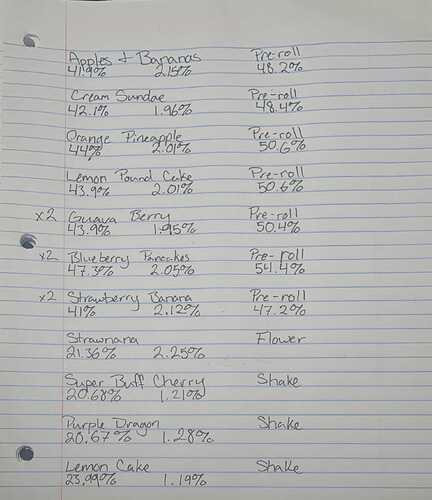 Apples & Bananas Pre-roll
41.9% 2.15% 48.2%
Cream Sundae Pre-roll
42.1% 1.96% 48.4%
Orange Pineapple Pre-roll
44% 2.01% 50.6%
Lemon Pound Cake Pre-roll
43.9% 2.01% 50.6%
x2 Guava Berry Pre-roll
43.9% 1.95% 50.4%
x2 Blueberry Pancakes Pre-roll
47.3% 2.05% 54.4%
x2 Strawberry Banana Pre-roll
41% 2.12% 47.2%
Strawnana Flower
21.36% 2.25%
Super Buff Cherry Shake
20.68% 1.21%
Purple Dragon Shake
20.67% 1.28%
Lemon Cake Shake
23.99% 1.19%